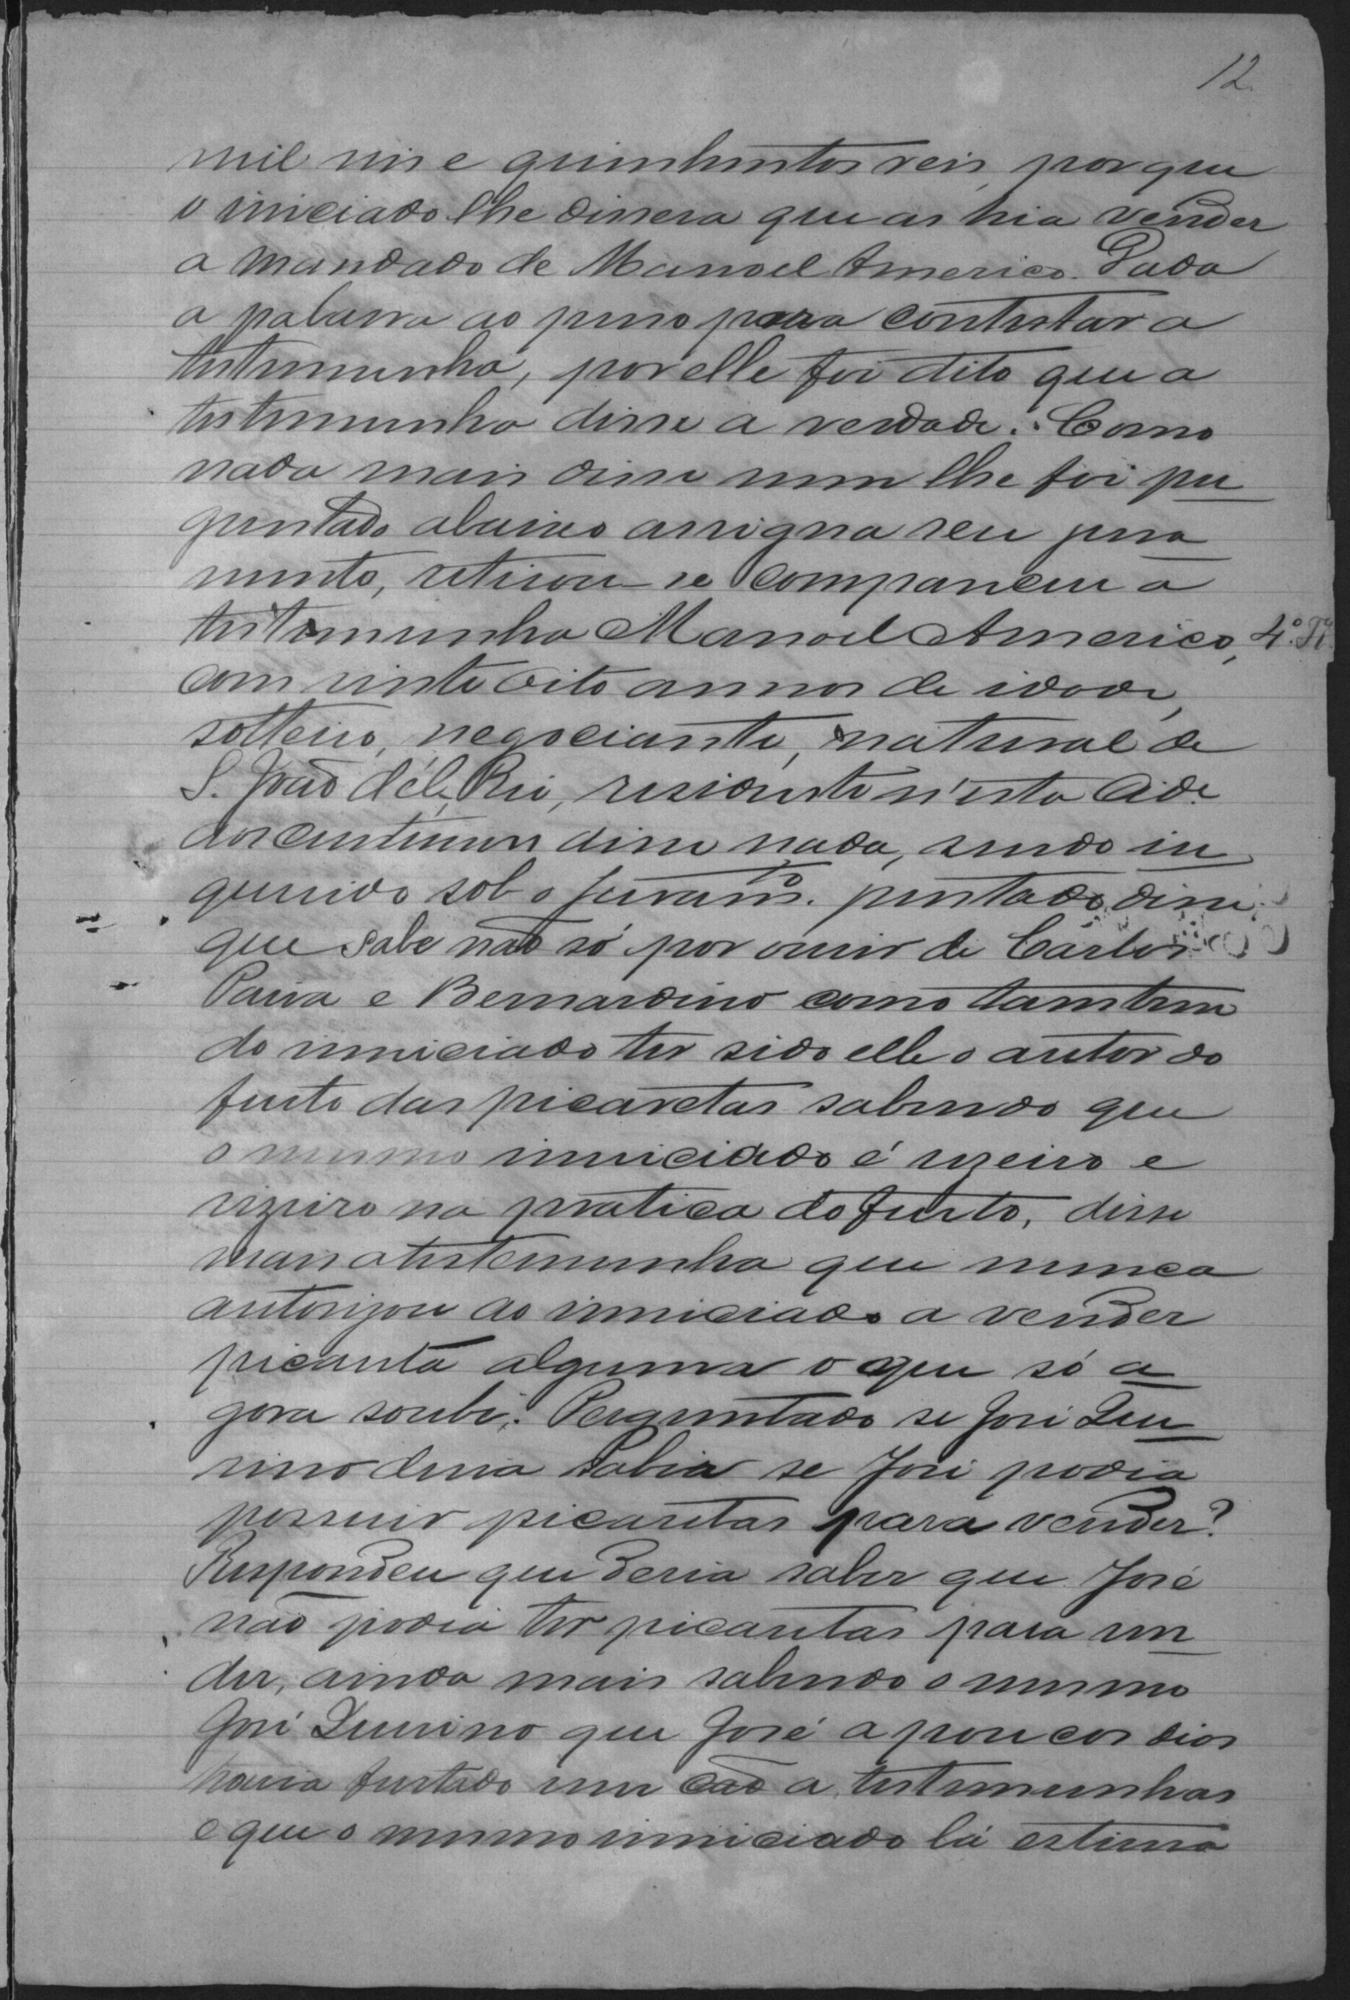 12
mil reis e quinhentos reis, porque
o iniciado lhe dissera que as hia vender
a mandado de Manoel Americo. Dada
a palavra ao preso para contestar a
testemunha, por elle foi dito que a
testemunha disse a verdade. Como
nada mais disse nem lhe foi per
guntado abaixo assigna seu jura
mento, retirou-se compareceu a
testemunha Manoel Americo, 4ª Tª
com vinte oito annos de idade,
solteiro, negociante, natural de
S. João d'él Rei, residente n'esta Cide
aos custumes disse nada, sendo in
querido sob o juramto. prestado disse
que sabe não só por ouvir de Carlos
Paiva e Bernardino como tambem
do inniciado ter sido elle o autor do
furto das picaretas sabendo que
o mesmo inniciado é uzeiro e
vizeiro na pratica do furto, disse
mais a testemunha que nunca
autorizou ao inniciado a vender
picareta alguma o que só a
gora soube. Perguntado se José Que
rino devia sabia se José podia
possuir picaretas para vender?
Respondeu que devia saber que José
não podia ter picaretas para ven
der, ainda mais sabendo o mesmo
José Querino que José a poucos dias
havia furtado um cão a testemunhas
e que o mesmo inniciado lá estivera